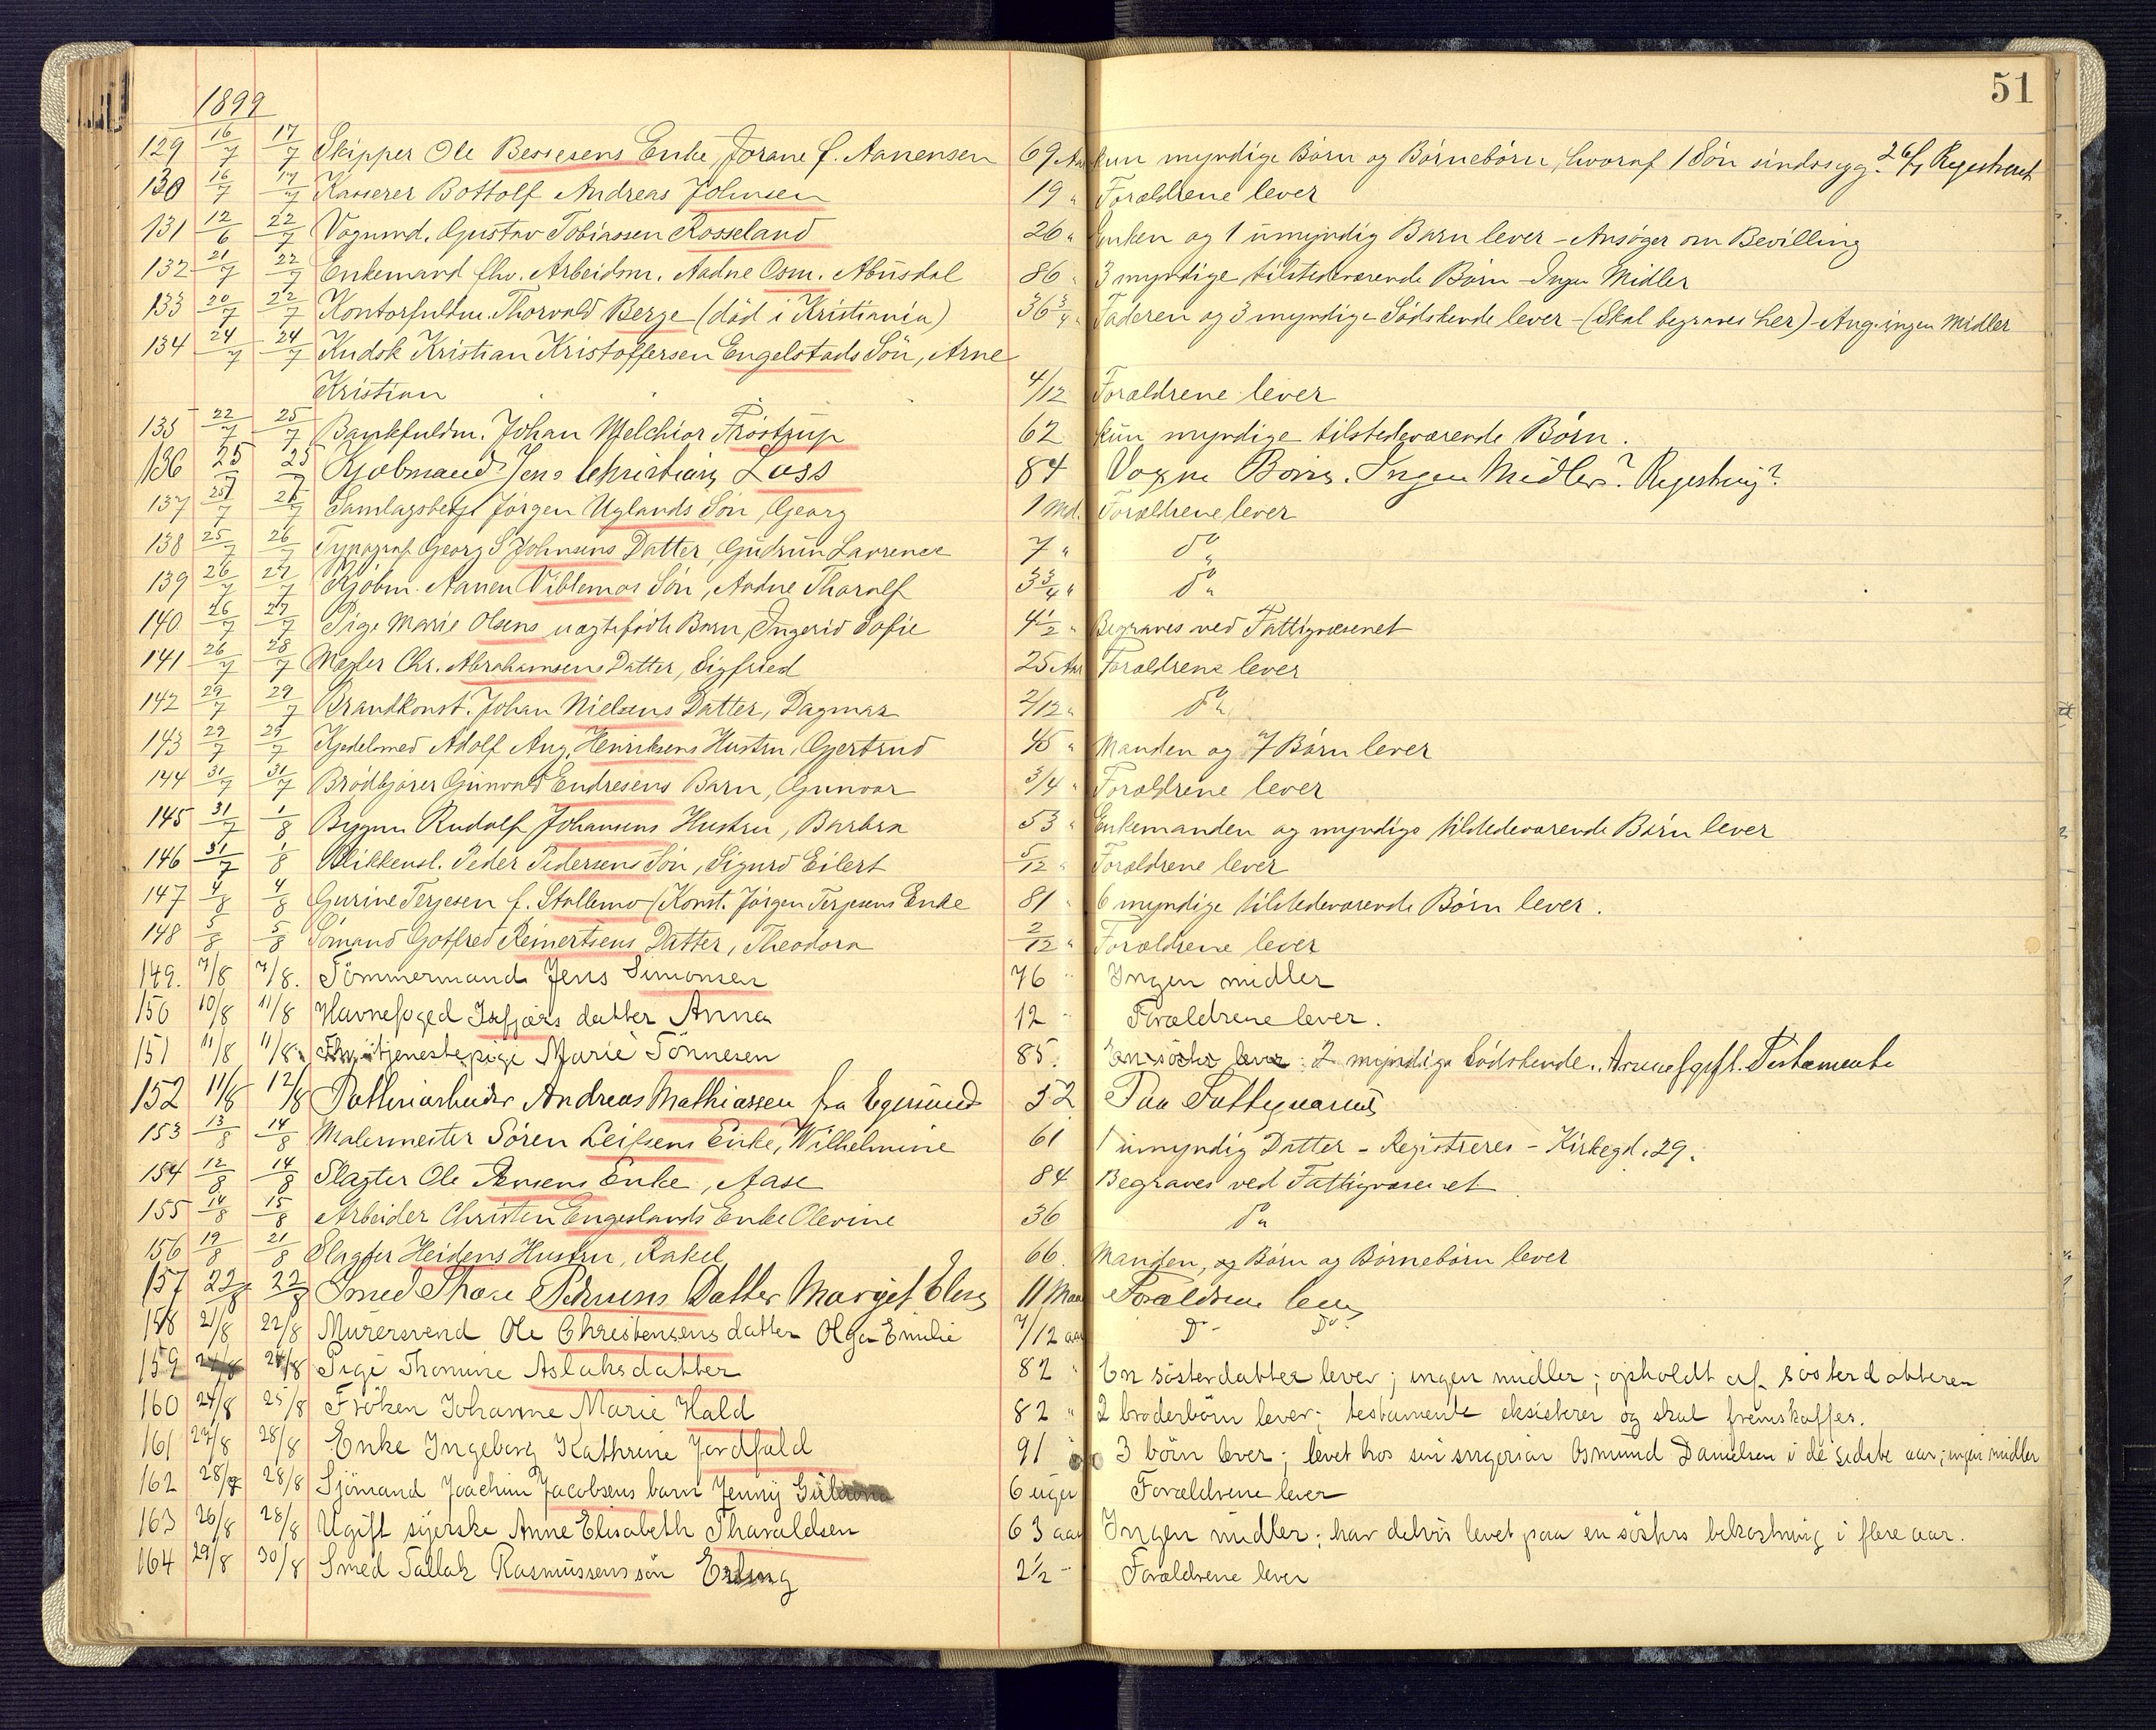 51
1899
129 16/7 17/7 Skipper Ole Beriesens Enke, Jorane f. Aanensen 69 Aar kun myndige Børn og Børnebørn, hvoraf 1 Søn sindssyg. 26/7 Registreret
130 16/7 17/7 Kasserer Bottolf Andreas Johnsen 19 " Forældrene lever
131 12/6 22/7 Vognmd. Gustav Tobiassen Rosseland 26 " Enken og 1 umyndig Barn lever - Ansøger om Bevilling
132 21/7 22/7 Enkemand fhv. Arbeidsm. Aadne Osm. Abusdal 86 " 3 myndige tilstedeværende Børn - Ingen Midler
133 20/7 22/7 Kontorfuldm. Thorvald Berge (död i Kristiania) 36 3/4 " Faderen og 3 myndige Södskende lever - (Skal begraves her) - Ang. ingen Midler
134 24/7 24/7 Kudsk Kristian Kristoffersen Engelstads Sön, Arne
Kristian 4/12 Forældrene lever
135 22/7 25/7 Bankfuldm. Johan Melchior Fröstrup 62 kun myndige tilstedeværende Börn.
136 25/7 25/7 Kjøbmand Jens Christian Luss 84 Voxne Børn. Ingen Midler? Registrering?
137 25/7 26/7 Samlagsbetj. Jörgen Uglands Sön, Georg 1 Md. Forældrene lever
138 25/7 26/7 Typograf Georg S Johnsens Datter, Gudrun Laurence 7 " do "
139 26/7 27/7 Kjöbm. Aanen Viblemos Sön, Aadne Tharalf 3 3/4 " do "
140 26/7 27/7 Pige Marie Olsens uægtefödte Barn, Ingerid Sofie 4 1/2 " Begraves ved Fattigvæsenet
141 26/7 28/7 Mægler Chr. Abrahamsens Datter, Sigfried 25 Aar Forældrene lever
142 29/7 29/7 Brandkonst. Johan Nielsens Datter, Dagmar 2/12 " do "
143 29/7 29/7 Kjedelsmed Adolf Aug. Henriksens Hustru, Gjertrud 45 " Manden og 7 Börn lever
144 31/7 31/7 Brödkjörer Gunvald Endresens Barn, Gunvor 3/4 " Forældrene lever
145 31/7 1/8 Bygm. Rudolf Johansens Hustru, Barbra 53 " Enkemanden og myndige tilstedeværende Börn lever
146 31/7 1/8 Blikkensl. Peder Pedersens Sön, Sigurd Eilert 5/12 " Forældrene lever
147 4/8 4/8 Gurine Terjesen f. Stallemo (Konst. Jörgen Terjesens Enke 81 " 6 myndige tilstedeværende Börn lever.
148 5/8 5/8 Sömand Gotfred Reinertsens Datter, Theodora 2/12 " Forældrene lever
149. 7/8 7/8. Tömmermand Jens Simonsen 76 " Ingen midler
150 10/8 11/8 Havnefoged Isefjærs datter Anna 12 " Forældrene lever.
151 11/8 11/8. tjenestepige Marie Tönnesen 85. En söster lever: 2 myndige Södskende. Testamente
152 11/8 12/8 Andreas Mathiassen fra Egersund 52 Paa Fattigvæsenet
153 13/8 14/8 Malermester Sören Leifsens Enke, Wilhelmine 61 1 umyndig Datter - Registreres - Kirkegd. 29.
154 12/8 14/8 Slagter Ole Jensens Enke, Aase 84 Begraves ved Fattigvæsenet
155 14/8 15/8 Arbeider Christen Engeslands Enke Olevine 36 do "
156 19/8 21/8 Slagter Heidens Hustru, Rakel 66. Manden, og Börn og Börnebörn lever
157 22/8 22/8 Smed Thore Pedersens Datter Margit Elise 11 Maa Forældrene lever
158 21/8 22/8 Murersvend Ole Christensens datter Olga Emilie 7/12 aar Do - Do -
159 24/8 24/8 Pige Thomine Aslaksdatter 82 " En sösterdatter lever; ingen midler; opholdt af sösterdatteren
160 24/8 25/8 Fröken Johanne Marie Hald 82 " 2 broderbörn lever; testamente eksisterer og skal fremskaffes.
161 27/8 28/8 Enke Ingeborg Kathrine Jordfald 91 3 börn lever; levet hos sin svigersön Osmund Danielsen i de sidste aar; ingen midler
162 28/8 28/8 Sjömand Joachim Jacobsens barn Jenny 6 uger Forældrene lever
163 26/8 28/8 Ugift syerske Anne Elisabeth Tharaldsen 63 aar Ingen midler; har delvis levet paa en sösters bekostning i flere aar.
164 29/8 30/8 Smed Tallak Rasmussens sön Erling 2 1/2 - Forældrene lever